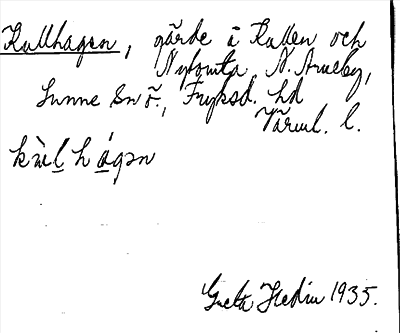 Kullhagen, gärde i Kullen och
Nytomta, N. Åmneby,
Sunne sn ö., Fryksd. hd
Värml. l.
kùl hágən
Greta Hedin 1935.